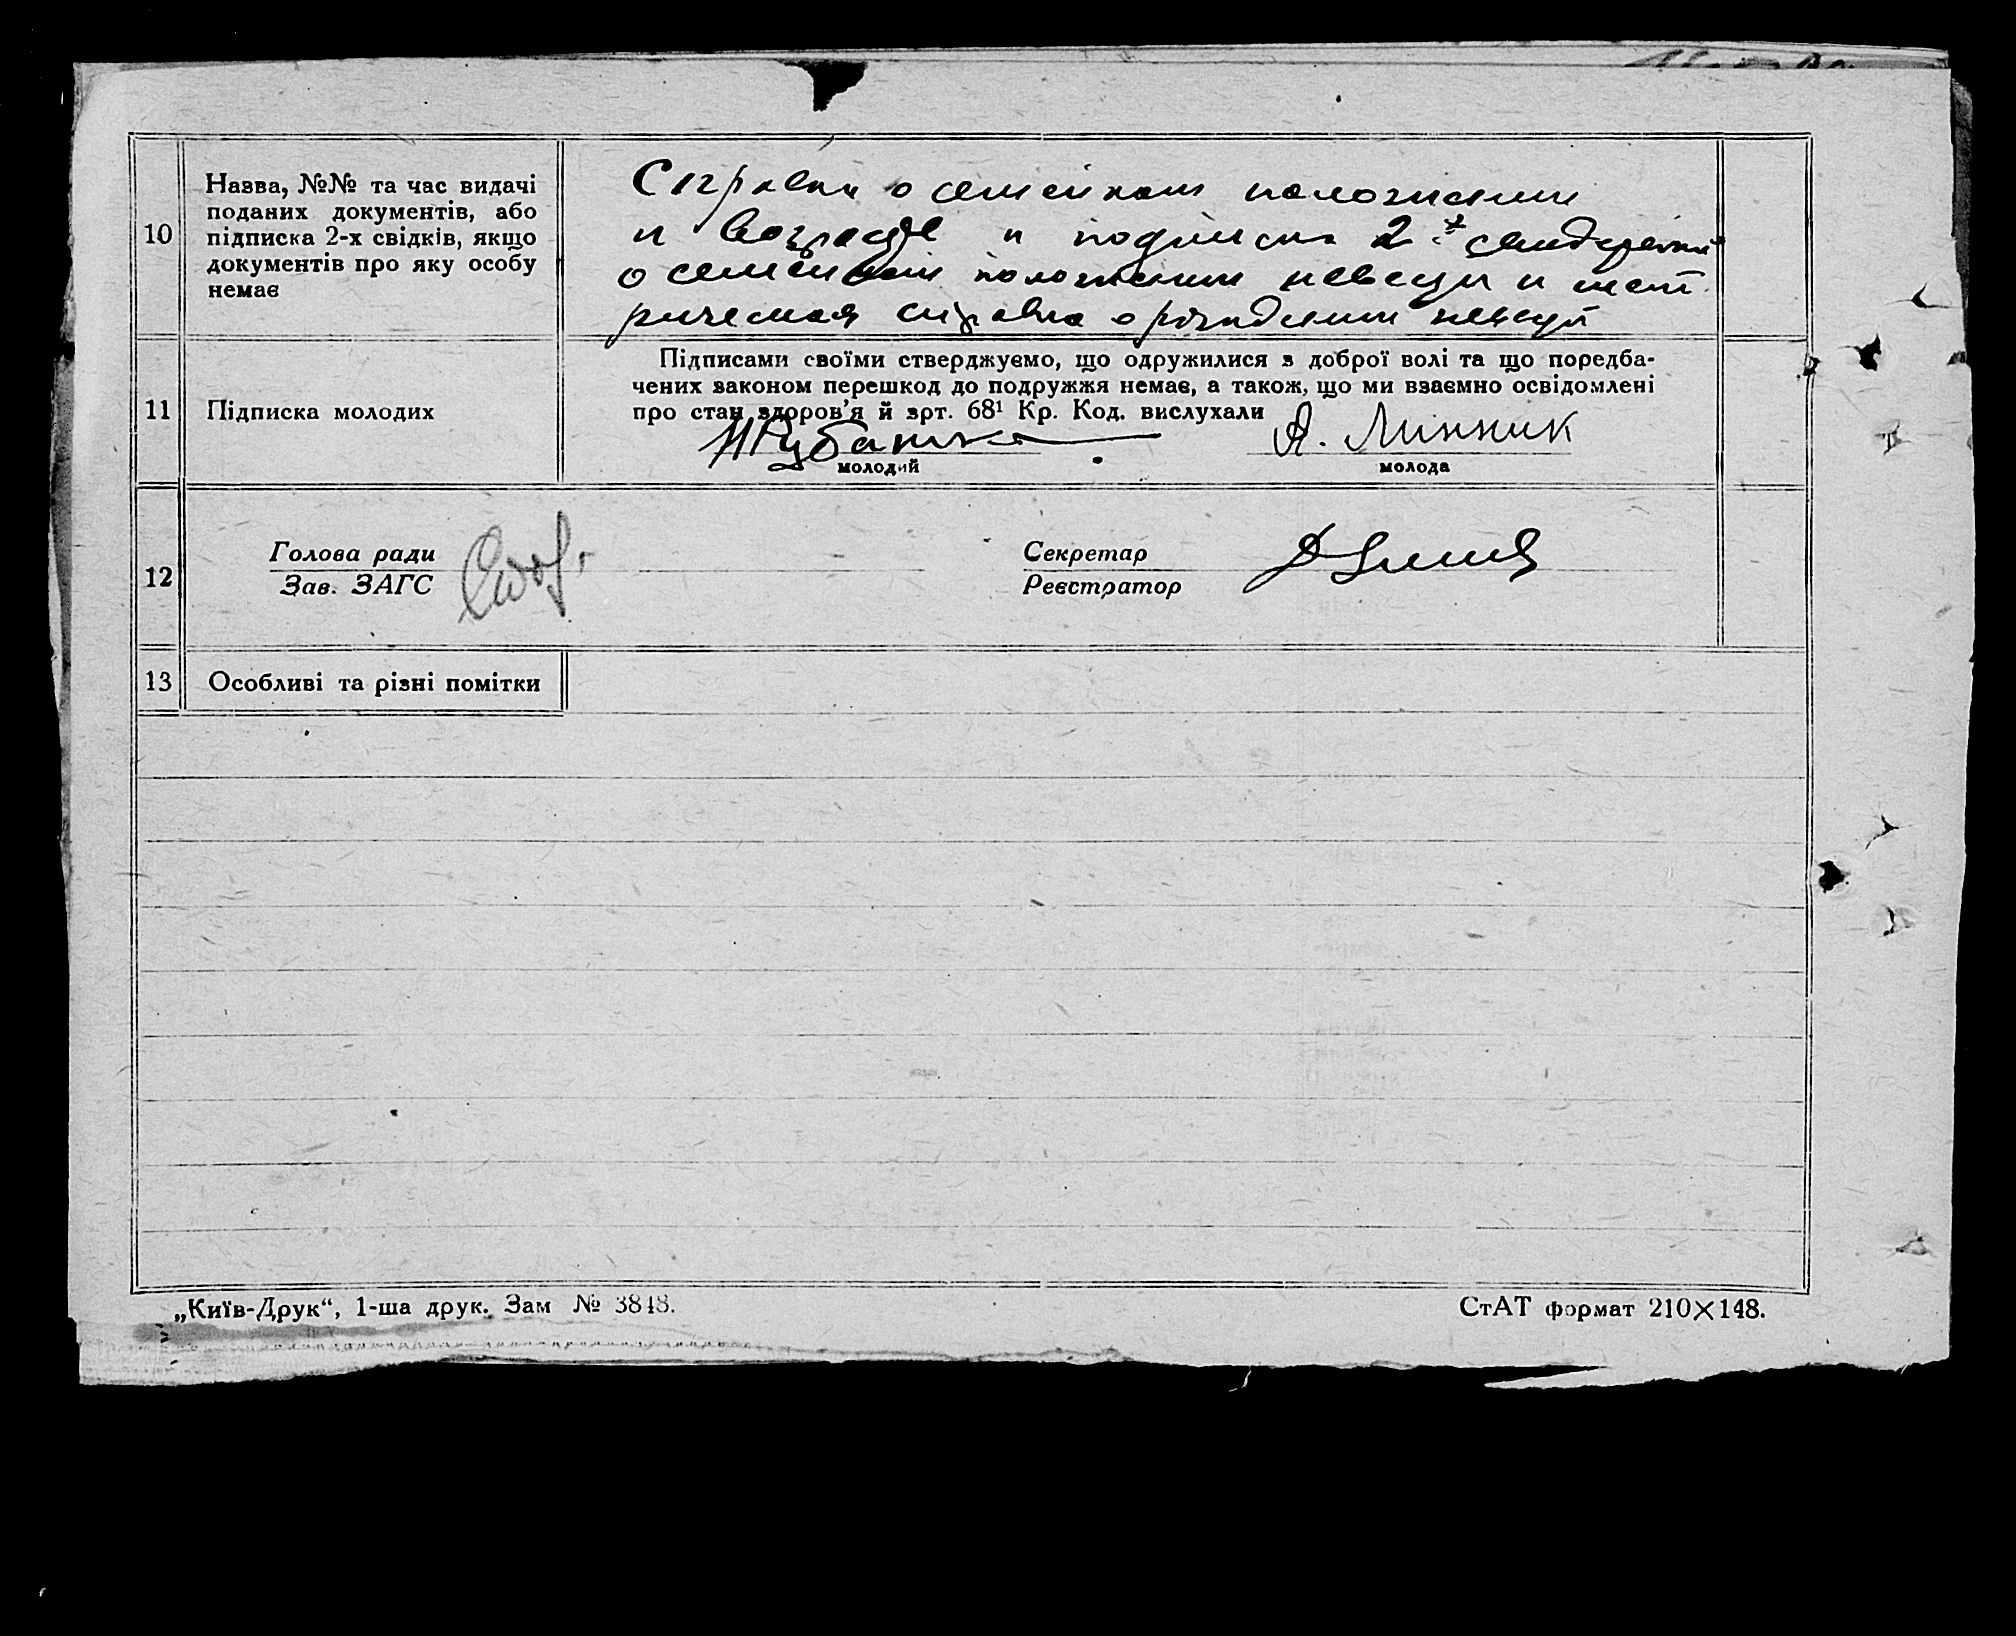 10
Назва, №№ та час видачі
поданих документів, або
підписка 2-х свідків, якщо
документів про яку особу
немає
Справка о семейном положении
и возрасте и подписка 2х свидетелей
о семейном положении невесты и мет
рическая справка о рождении невесты
11
Підписка молодих
Підписами своїми стверджуємо, що одружилися з доброї волі та що поредба-
чених законом перешкод до подружжя немає, а також, що ми взаємно освідомлені
про стан здоров'я й зрт. 68¹ Кр. Код. вислухали
Рубашка
А. Минник
молодий
молода
12
Голова ради
Зав. ЗАГС
Секретар
Реєстратор
13
Особливі та різні помітки
„Київ-Друк“, 1-ша друк. Зам № 3848.
СтАТ формат 210×148.